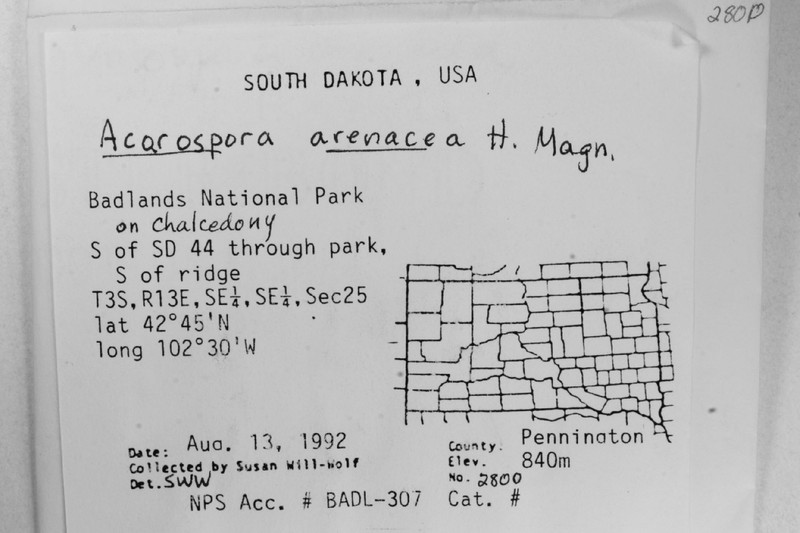 280P
SOUTH DAKOTA, USA
Acarospora arenacea H. Magn.
Badlands National Park
on Chalcedony
S of SD 44 through park,
S of ridge
T3S, R13E, SE¼, SE¼, Sec25
lat 42°45'N
long 102°30'W
Date: Aug. 13, 1992
Collected by Susan Will-Wolf
Det. SWW
County: Pennington
Elev. 840m
No. 2800
NPS Acc. # BADL-307 Cat. #